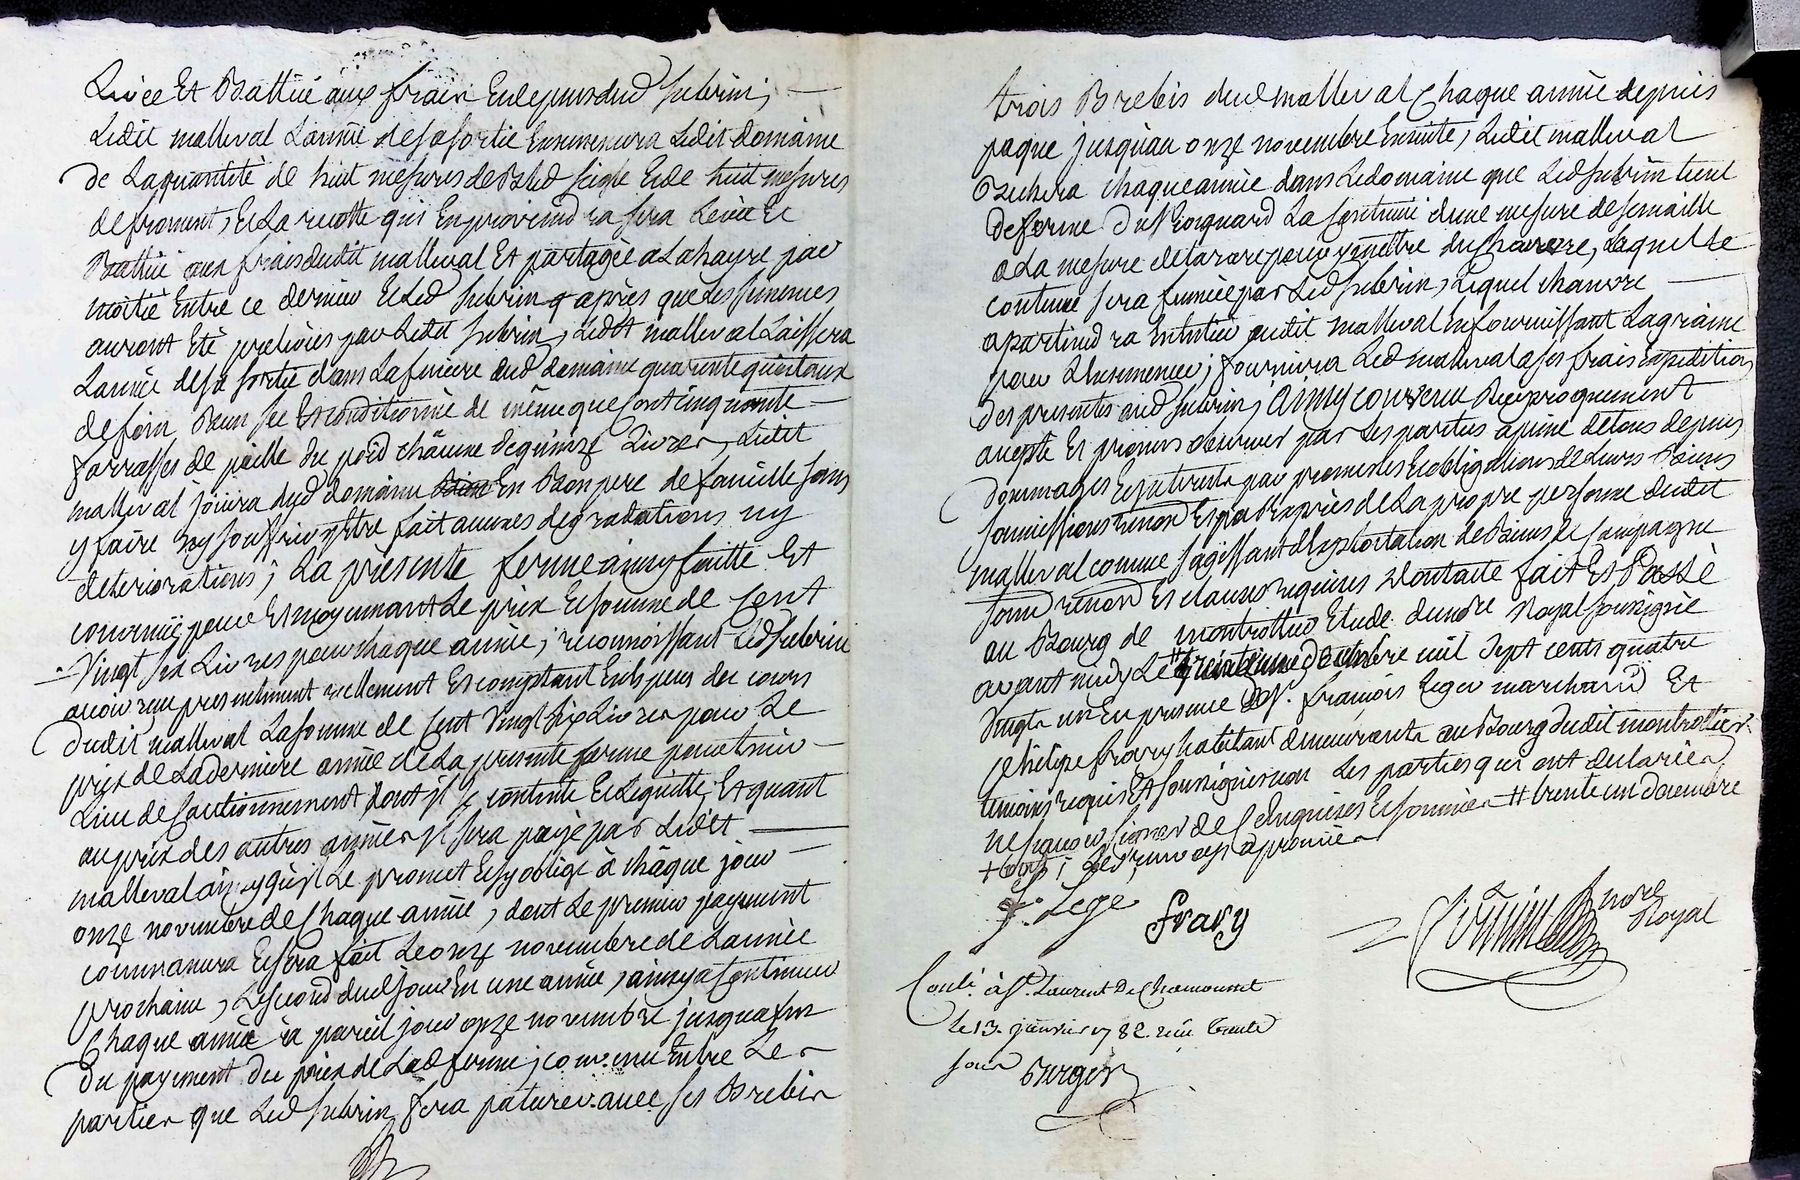 Levée Et Battüe aux frais Et depens dud Subrin,
Ledit malleval L'année de sa sortie Ensemencera Ledit domaine
de La quantité de huit mesures de Bled seigle Et de huit mesures
de froment, Et La recolte qui En proviendra sera Levée Et
Battüe aux frais dudit malleval Et partagée a Lahayre par
moitié Entre ce dernier Et Led Subrin après que Les semences
auront Eté prelevées par Ledit Subrin, Ledit malleval Laissera
L'année de sa sortie dans La feniere dud domaine quarante quintaux
de foin Bien sec Et conditionné de même que Cent cinquante
farrasses de paille du poid châcune de quinze Livres, Ledit
malleval joüira dud domaine En Bon pere de famille sans
y faire ny souffrir Etre fait aucunes degradations ny
deteriorations; La présente ferme ainsy faitte Et
convenüe pour Et moyennant Le prix Et somme de Cent
Vingt six Livres pour chaque année, reconnoissant Led Subrin
avoir reçu presentement reellement Et comptant En Especes du cours
dudit malleval La somme de Cent Vingt six Livres pour Le
prix de La derniere année de La presente ferme pour tenir
Lieu de Cautionnement dont il se contente Et L'quitte, Et quant
au prix des autres années il sera payé par Ledit
malleval ainsy qu'il Le promet Et s'y oblige à châque jour
onze novembre de Chaque année, dont Le premier payement
commancera Et sera fait Le onze novembre de L'année
prochaine, Le second dud jour En une année, ainsy a Continuer
Chaque année a pareil jour onze novembre jusqu'a fin
Du payement du prix de Lad ferme; convenu Entre Les
parties que Led Subrin fera paturer avec ses Brebis
trois Brebis dud malleval Chaque année depuis
paque jusqu'au onze novembre Ensuite, Ledit malleval
chaque année dans Le domaine que Led Subrin tient
de ferme du La Contenüe d'une mesure de semaille
a La mesure de pour y mettre du Chanvre, Laquelle
contenüe sera fumée par Led Subrin, Lequel chanvre
apartiendra Entier audit malleval En fournissant La graine
pour L'Ensemencer; fournira Led malleval a ses frais Expedition
des presentes aud Subrin; Ainsy convenu Reciproquement
accepté Et promis observer par Les parties a peine de tous depens
dommages Et interets par promesses Et obligations de Leurs Biens
soumissions renon Et par Exprès de La propre personne dudit
malleval comme s'agissant d'Exploitation de Biens de Campagne
soum renon Et clauses requises dont acte fait Et Passé
au Bourg de montrottier Etude du nore Royal soussigné
avant midy Le # mil sept cents quatre
vingts un En presence de Sr. françois Leger marchand Et
philipe frary habitant demeurants au Bourg dudit montrottier
temoins requis Et soussignés non Les parties qui ont declaré
ne sçavoir signer de ce Enquises Et sommées # trente un decembre
f. Legé
frary
nore
Royal
Conlé. à St. Laurent De Chamousset
Le 13. janvier 1782 reçu trente
sous